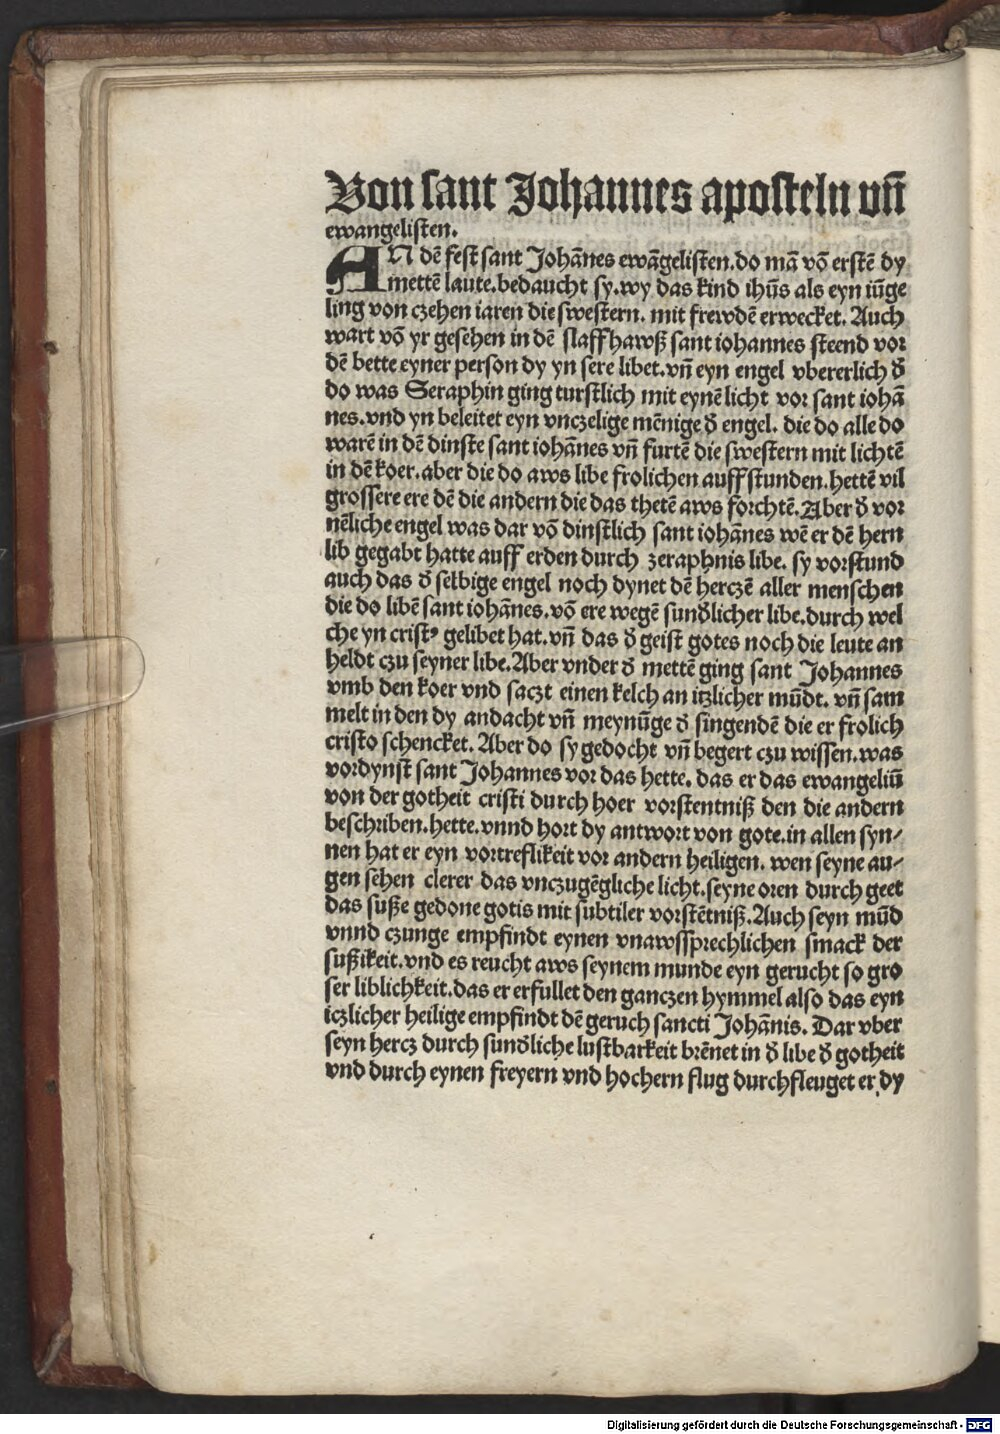 Von sant Johannes aposteln vn̄
ewangelisten.
AN dē fest sant Johānes ewāgelisten. do mā vō erstē dy
mettē laute. bedaucht sy. wy das kind ihūs als eyn iūge
ling von czehen iaren die swestern. mit frewdē erwecket. Auch
wart vō yr gesehen in dē slaffhawß sant iohannes steend vor
dē bette eyner person dy yn sere libet. vn̄ eyn engel vbererlich đ
do was Seraphin ging turstlich mit eynē licht vor sant iohā
nes. vnd yn beleitet eyn vnczelige mēnige đ engel. die do alle do
warē in dē dinste sant iohānes vn̄ furtē die swestern mit lichtē
in dē koer. aber die do aws libe frolichen auffstunden. hettē vil
grossere ere dē die andern die das thetē aws forchtē. Aber đ vor
nēliche engel was dar vō dinstlich sant iohānes wē er dē hern
lib gegabt hatte auff erden durch zeraphnis libe. sy vorstund
auch das đ selbige engel noch dynet dē herczē aller menschen
die do libē sant iohānes. vō ere wegē sunđlicher libe. durch wel
che yn cristꝰ gelibet hat. vn̄ das đ geist gotes noch die leute an
heldt czu seyner libe. Aber vnder đ mettē ging sant Johannes
vmb den koer vnd saczt einen kelch an itzlicher mūdt. vn̄ sam
melt in den dy andacht vn̄ meynūge đ singendē die er frolich
cristo schencket. Aber do sy gedocht vn̄ begert czu wissen. was
vordynst sant Johannes vor das hette. das er das ewangeliū
von der gotheit cristi durch hoer vorstentniß den die andern
beschriben. hette. vnnd hort dy antwort von gote. in allen syn⸗
nen hat er eyn vortreflikeit vor andern heiligen. wen seyne au⸗
gen sehen clerer das vnczugēgliche licht. seyne oren durch geet
das suße gedone gotis mit subtiler vorstētniß. Auch seyn mūd
vnnd czunge empfindt eynen vnawssprechlichen smack der
sußikeit. vnd es reucht aws seynem munde eyn gerucht so gro
ser liblichkeit. das er erfullet den ganczen hymmel also das eyn
iczlicher heilige empfindt dē geruch sancti Johānis. Dar vber
seyn hercz durch sunđliche lustbarkeit brēnet in đ libe đ gotheit
vnd durch eynen freyern vnd hochern flug durchfleuget er, dy
Digitalisierung gefördert durch die Deutsche Forschungsgemeinschaft - DFG